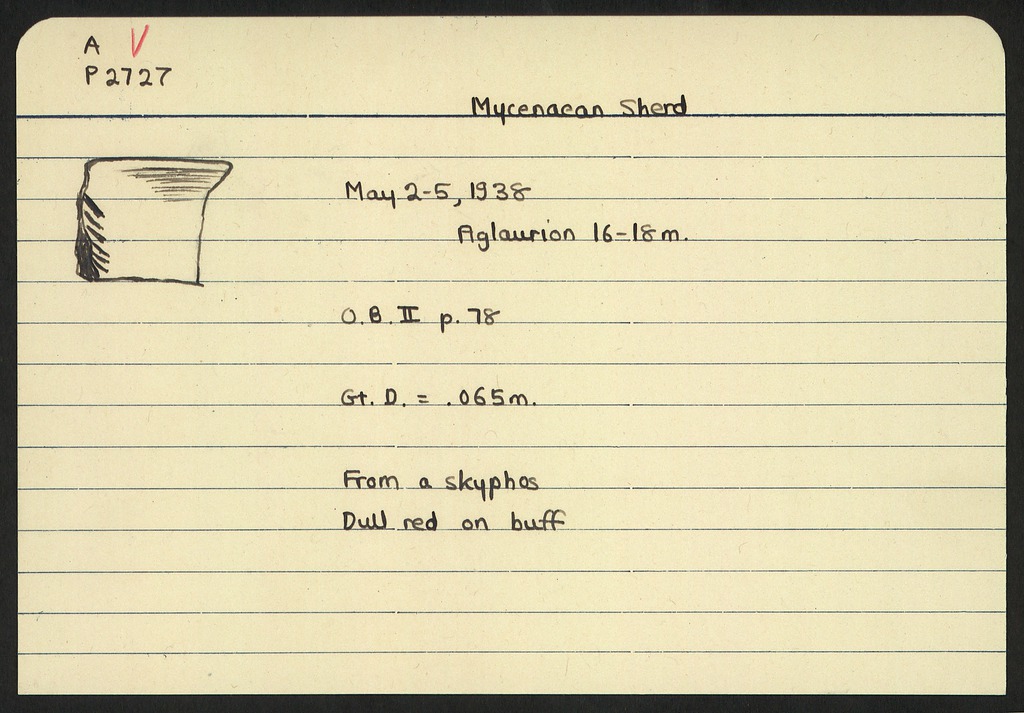 A V
P 2727
Mycenaean Sherd
May 2-5, 1938
Aglaurion 16-18m.
O.B. II p. 78
Gt. D. = .065m.
From a skyphos
Dull red on buff